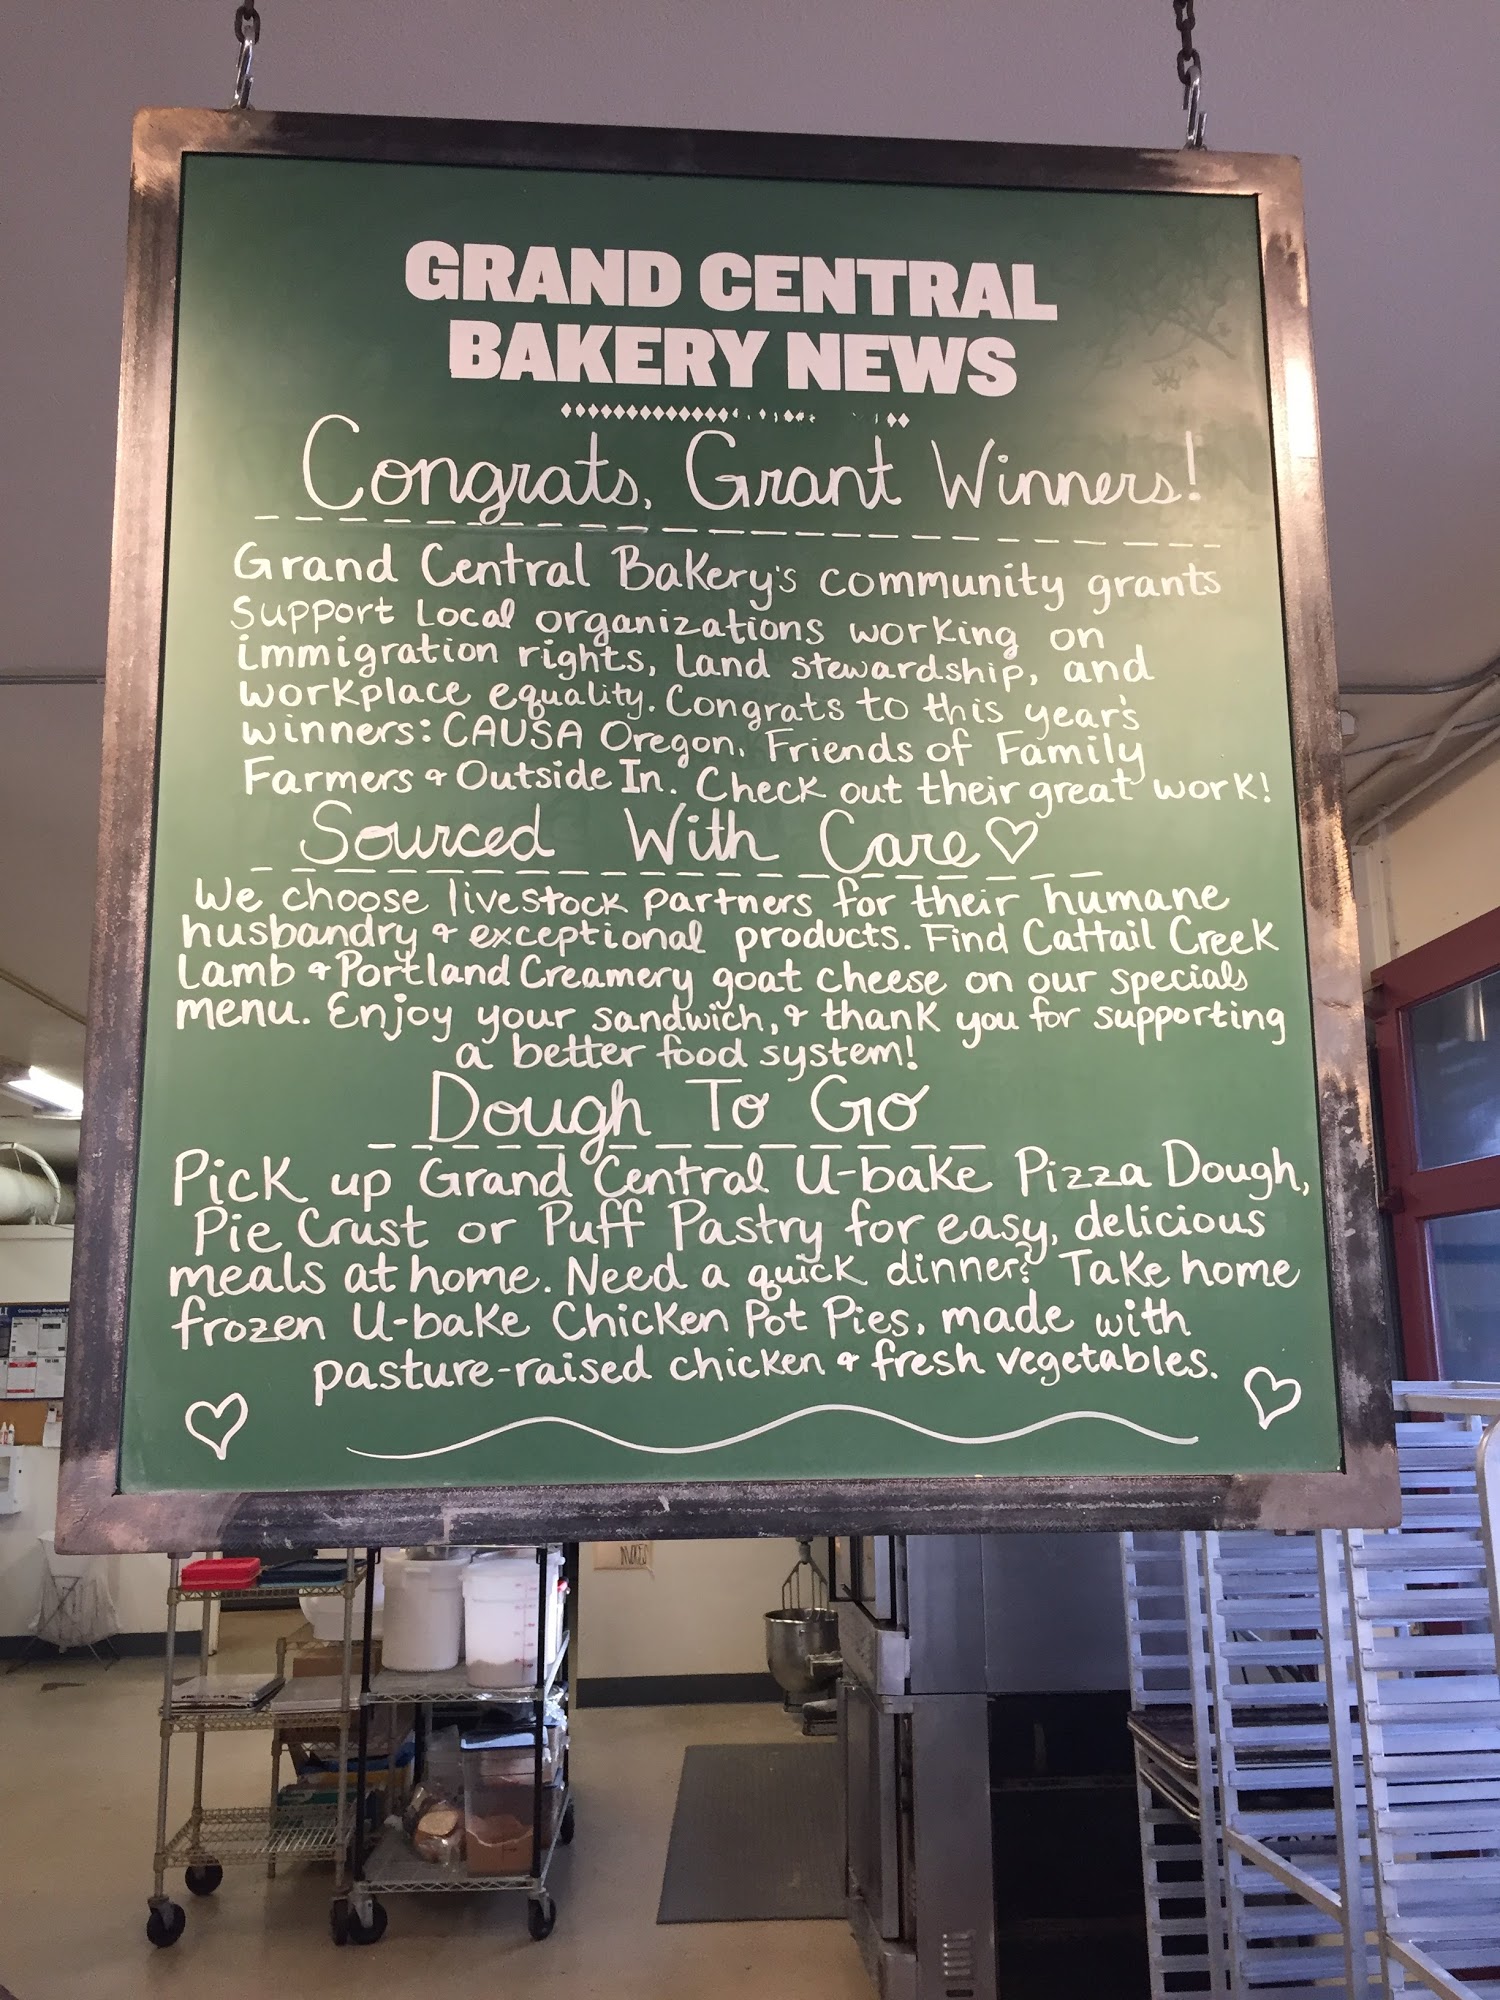 GRAND CENTRAL
BAKERY NEWS
Congrats, Grant Winners!
Grand Central Bakery's community grants
support local organizations working on
immigration rights, land stewardship, and
workplace equality. Congrats to this year's
winners: CAUSA Oregon, Friends of Family
Farmers & Outside In. Check out their great work!
Sourced With Care
We choose livestock partners for their humane
husbandry & exceptional products. Find Cattail Creek
Lamb & Portland Creamery goat cheese on our specials
menu. Enjoy your sandwich, & thank you for supporting
a better food system!
Dough To Go
Pick up Grand Central U-bake Pizza Dough,
Pie Crust or Puff Pastry for easy, delicious
meals at home. Need a quick dinner? Take home
frozen U-bake Chicken Pot Pies, made with
pasture-raised chicken & fresh vegetables.